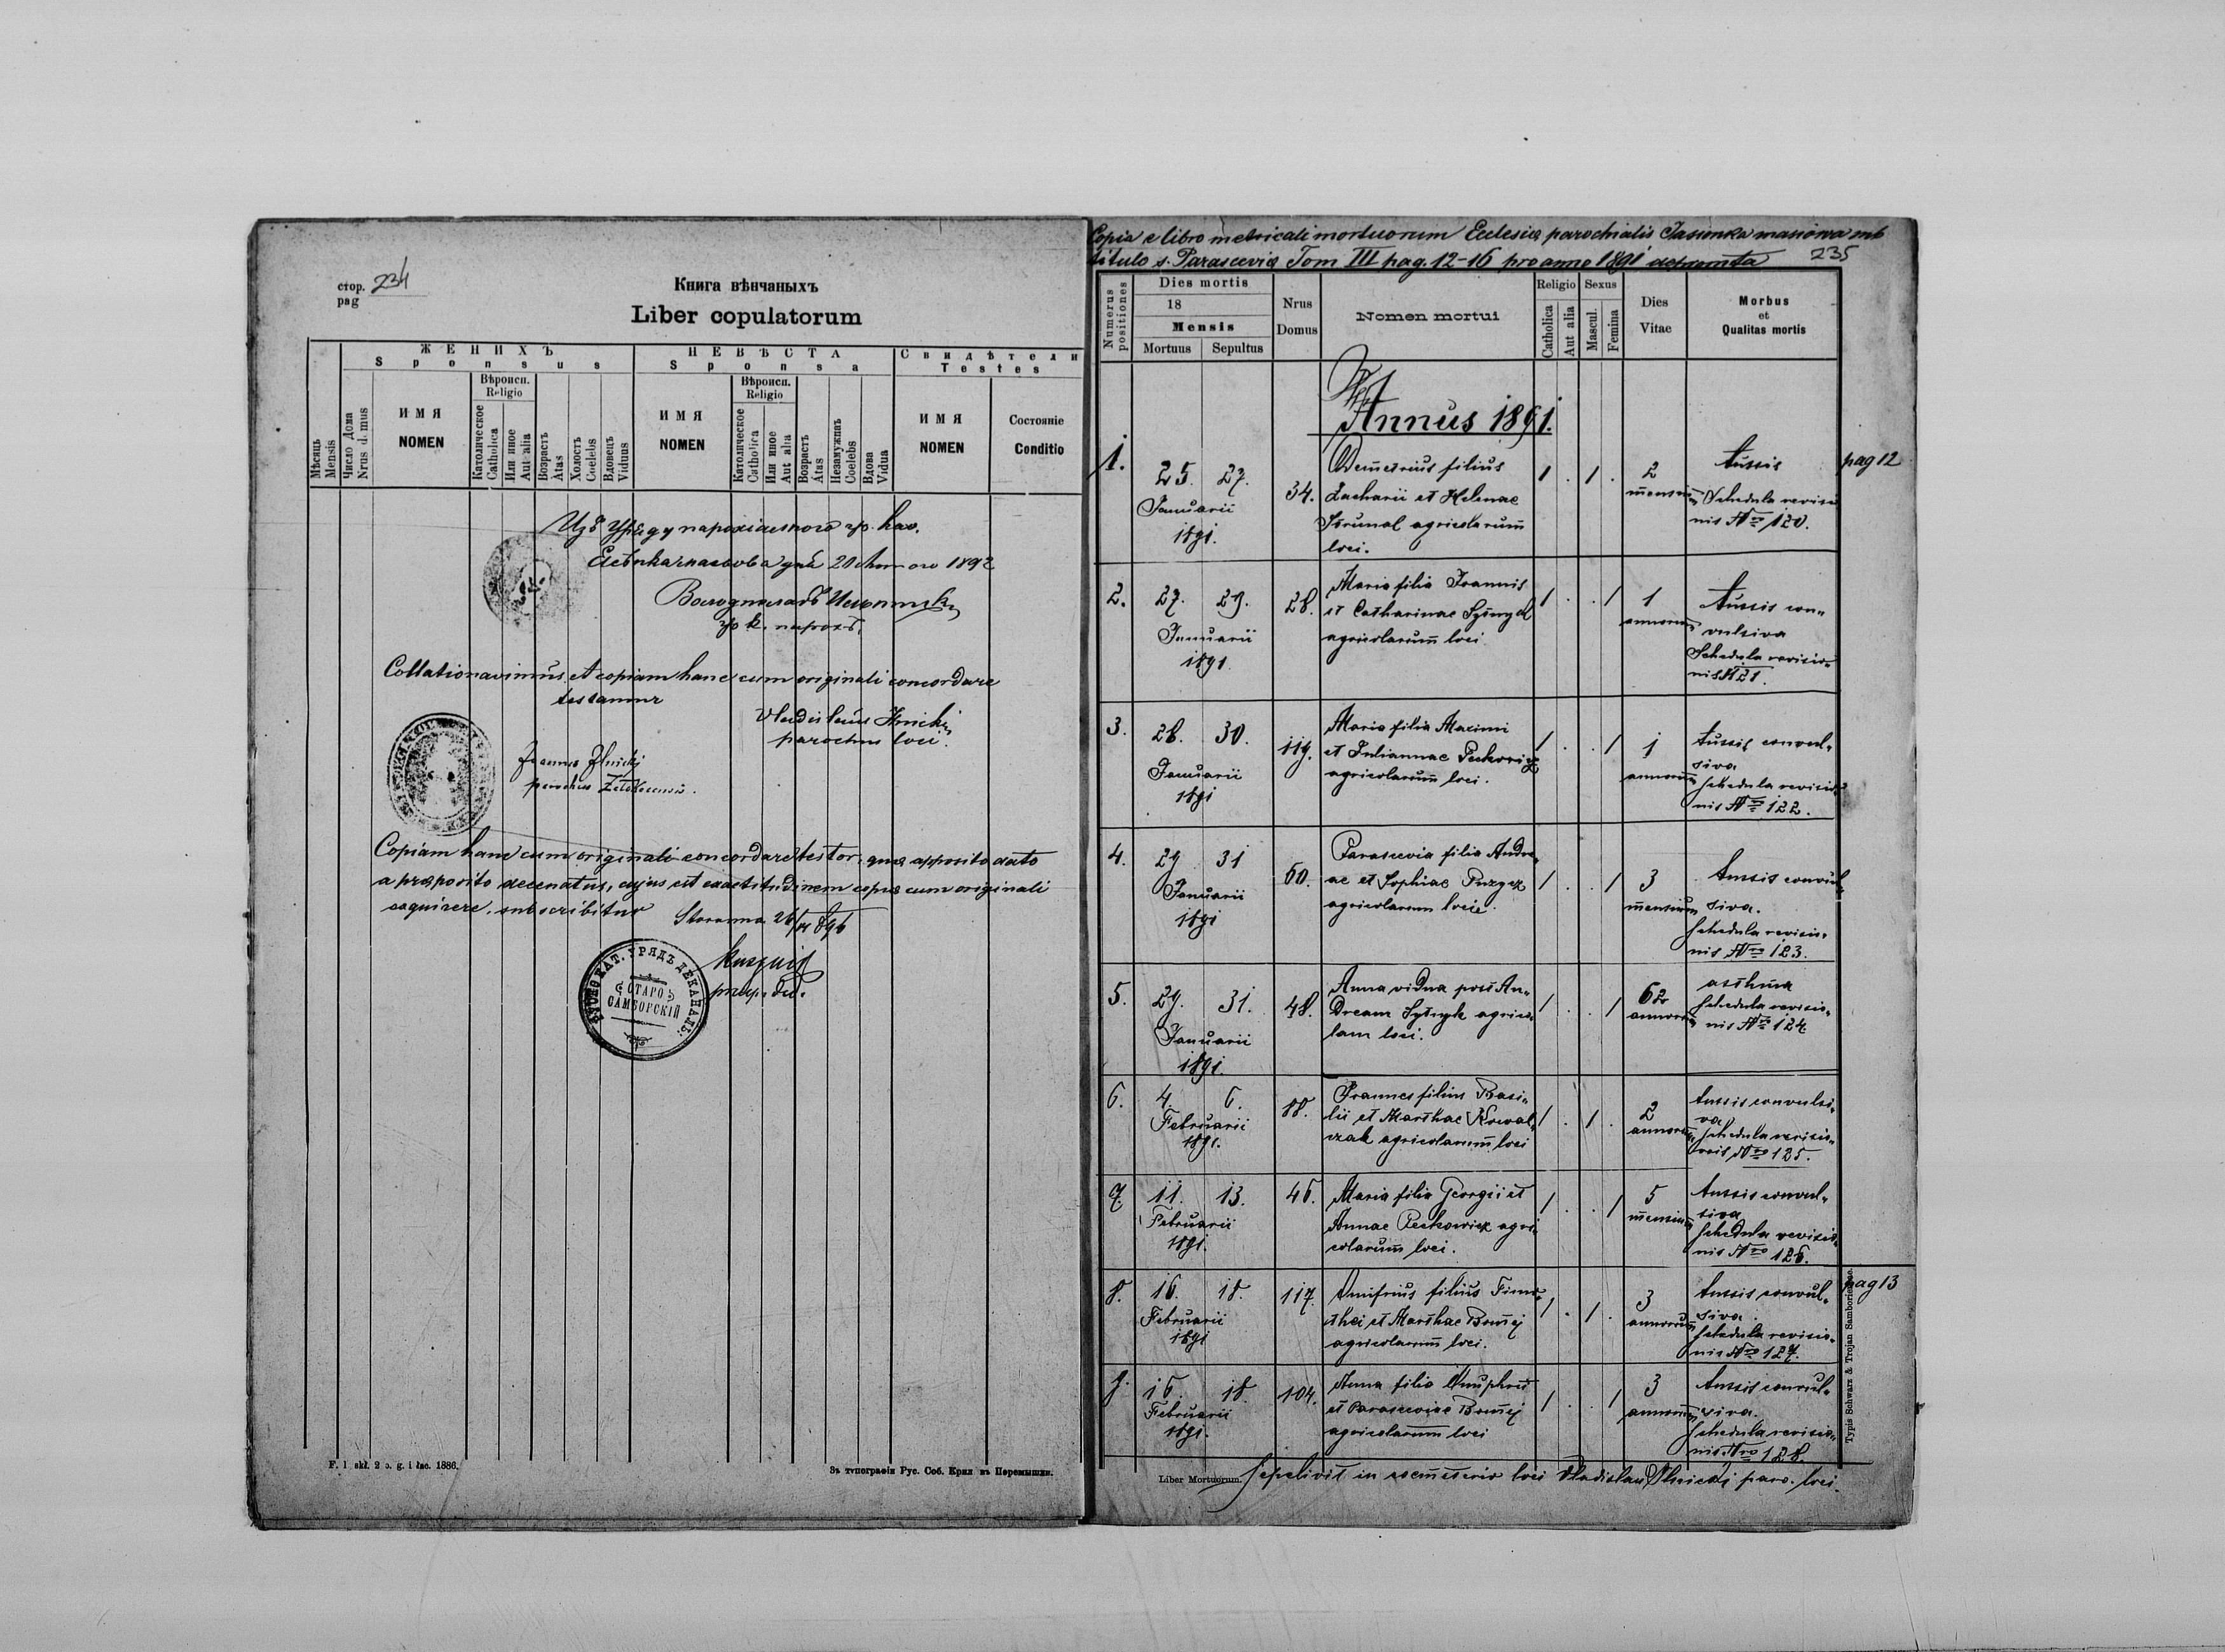 стор. 234
pag
Книга вѣнчаныхъ
Liber copulatorum
ЖЕНИХЪ
Sponsus
НЕВѢСТА
Sponsa
Свидѣтели
Testes
Мѣсяць
Mensis
Число Дома
Nrus d. mus
ИМЯ
NOMEN
Вѣроисп.
Religio
Католическое
Catholica
Или иное
Aut alia
Возрастъ
Átas
Холостъ
Coelebs
Вдовецъ
Viduus
ИМЯ
NOMEN
Вѣроисп.
Religio
Католическое
Catholica
Или иное
Aut alia
Возрастъ
Átas
Незамужнаъ
Coelebs
Вдова
Vidua
ИМЯ
NOMEN
Состояніе
Conditio
Изъ Уряду парохіяльного гр. кат.
дня 20 1892
гр. к. парохъ.
Collationavimus et copiam hanc cum originali concordare
testamur
Vladislaus Ilnicki
parochus loci.
Joannes Ilnicki
parochus
Copiam hanc cum originali concordare testor, qua apposito dato
a præposito decenatus, cujus est exactitudinem copiæ cum originali
subscribitur
26/ 896
УРЯДЪ ДЕКАНАЛЬ.
СТАРО
САМБОРСКІЙ
F. 1 skł. 2 o. g. i łac. 1886.
Зъ типографіи Рус. Соб. Крил. въ Перемышли.
Copia e libro metricali mortuorum Ecclesiæ parochialis Jasionka masiowa sub
titulo s. Parasceviæ Tom III pag. 12-16 pro anno 1891 desumta
235
Numerus
positiones
Dies mortis
18
Mensis
Mortuus
Sepultus
Nrus
Domus
Nomen mortui
Religio
Catholica
Aut alia
Sexus
Mascul.
Femina
Dies
Vitae
Morbus
et
Qualitas mortis
Annus 1891.
1.
25. 27.
Januarii
1891.
34.
Demetrius filius
Zacharii et Helenae
agricolarum
loci.
1 . 1 .
2
mensium
tussis
Schedula revisio
nis Nro 120.
pag 12
2.
27. 29.
Januarii
1891.
28.
Maria filia Joannis
et Catharinae Sytnyk
agricolarum loci
1 . . 1
1
annorum
tussis con„
vulsiva
Schedula revisio„
nis N 121.
3.
28. 30.
Januarii
1891
119.
Maria filia Maximi
et Juliannae Peckowicz
agricolarum loci.
1 . . 1
1
annorum
tussis convul„
siva
schedula revisio„
nis Nro 122.
4.
29 31
Januarii
1891
60.
Parascevia filia Andre„
ae et Sophiae Puzycz
agricolarum loci.
1 . . 1
3
mensium
tussis convul„
siva.
schedula revisio„
nis Nro 123.
5.
29. 31.
Januarii
1891.
48.
Anna vidua post An„
dream Sytnyk agrico„
lam loci.
1 . . 1
62
annorum
asthma
schedula revisio„
nis Nro 124
6.
4. 6.
Februarii
1891.
88.
Joannes filius Basi„
lii et Marthae Kowal„
czak agricolarum loci
1 . 1 .
2
annorum
tussis convulsi„
va
schedula revisio„
nis Nro 125.
7.
11. 13.
Februarii
1891.
46.
Maria filia Georgii et
Annae Peckowicz agri„
colarum loci.
1 . . 1
5
mensium
tussis convul„
siva
schedula revisio„
nis Nro 126.
8.
16. 18.
Februarii
1891
117.
Onufrius filius Timo„
thei et Marthae
agricolarum loci.
1 . 1 .
3
annorum
tussis convul„
siva.
schedula revisio„
nis Nro 127.
pag 13
9.
16. 18.
Februarii
1891.
104.
Anna filia Onuphrii
et Parasceviae
agricolarum loci
1 . . 1
3
annorum
tussis convul„
siva.
schedula revisio„
nis Nro 128.
Typis Schwarz & Trojan Samboriensae.
Liber Mortuorum.
Sepelivit in coemeterio loci Vladislaus Ilnicki paro. loci.